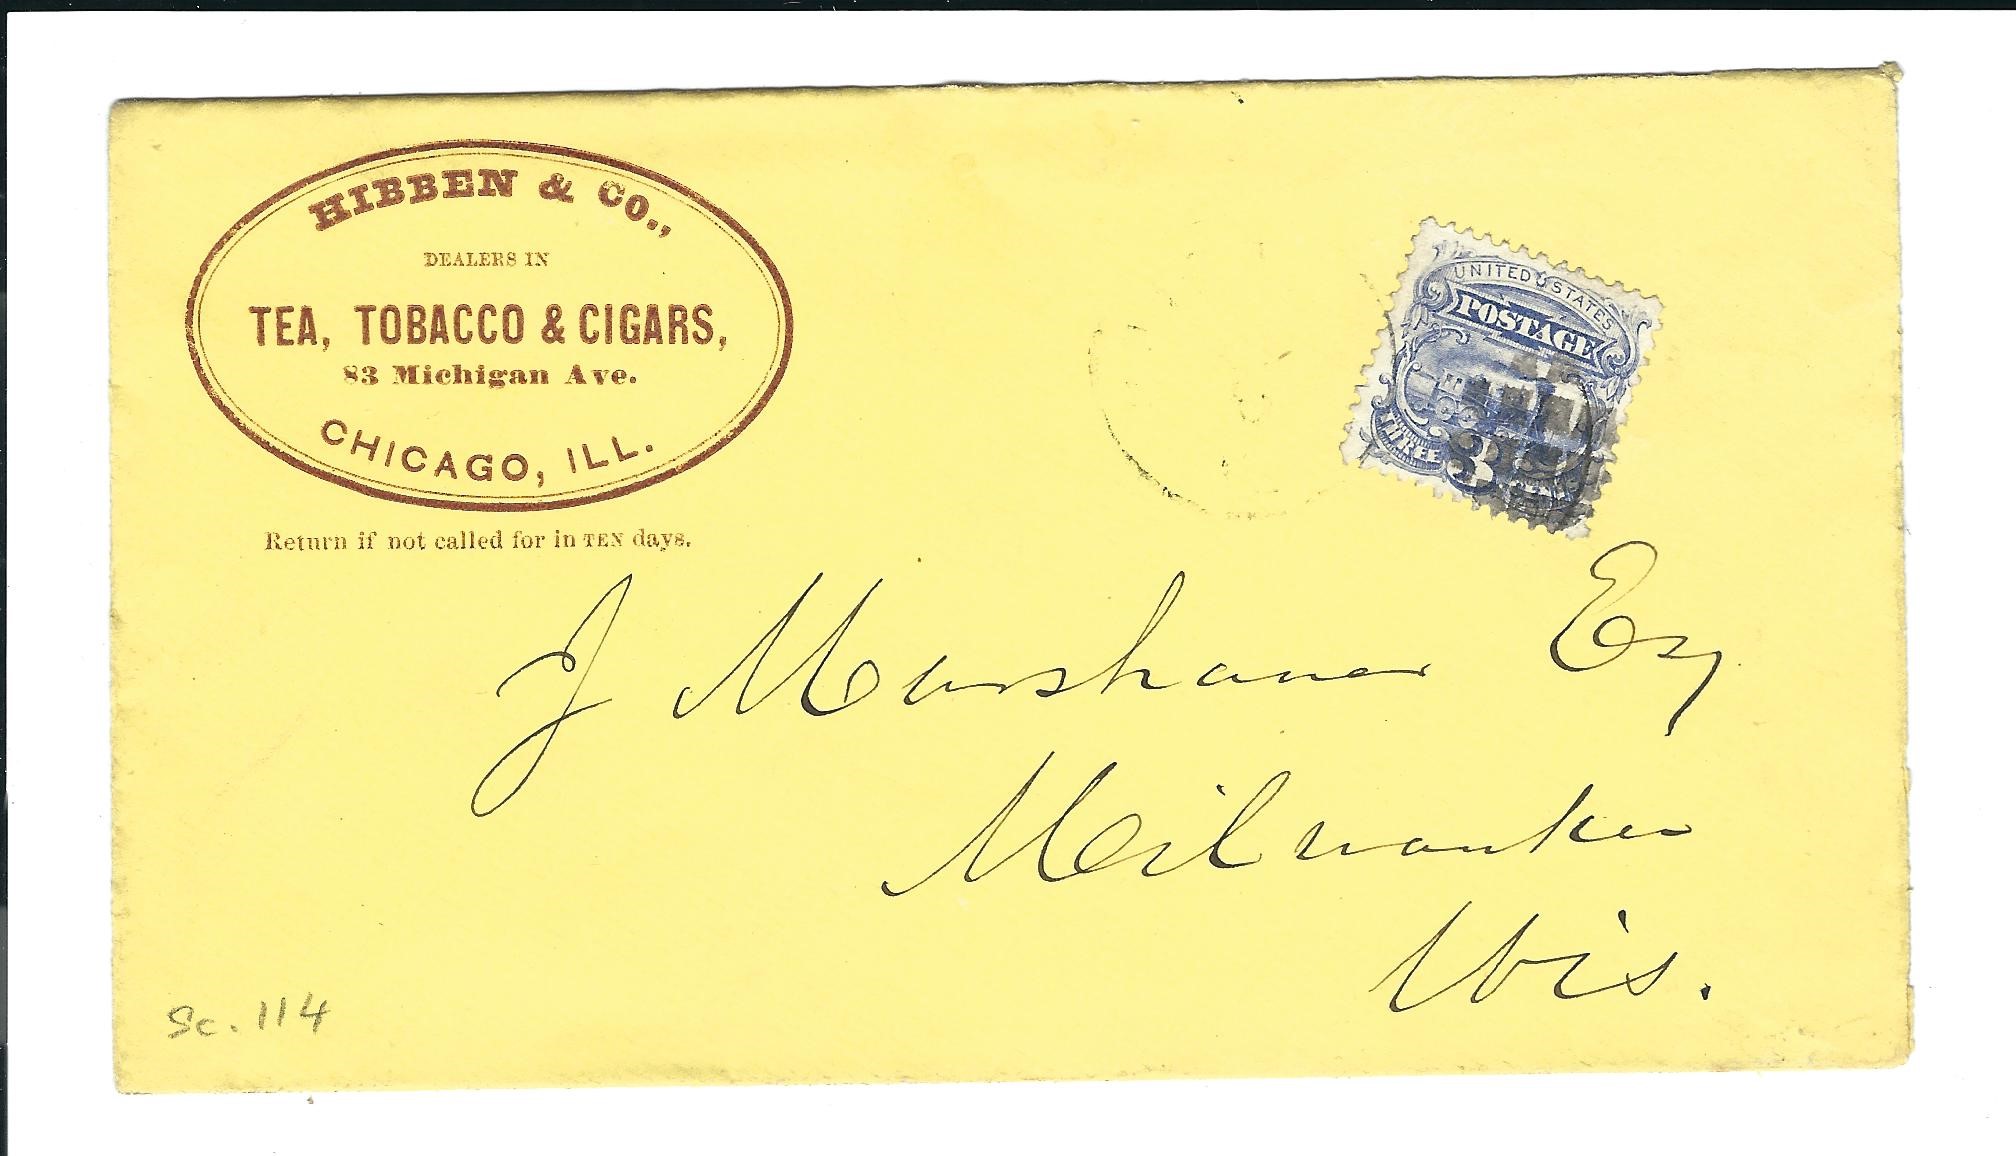 HIBBEN & Co.,
DEALERS IN
TEA, TOBACCO & CIGARS,
83 Michigan Ave.
CHICAGO, ILL.
Return if not called for in TEN days.
UNITED STATES
POSTAGE
THREE 3 CENTS
J Marshaner Esq
Milwaukee
Wis.
Sc. 114